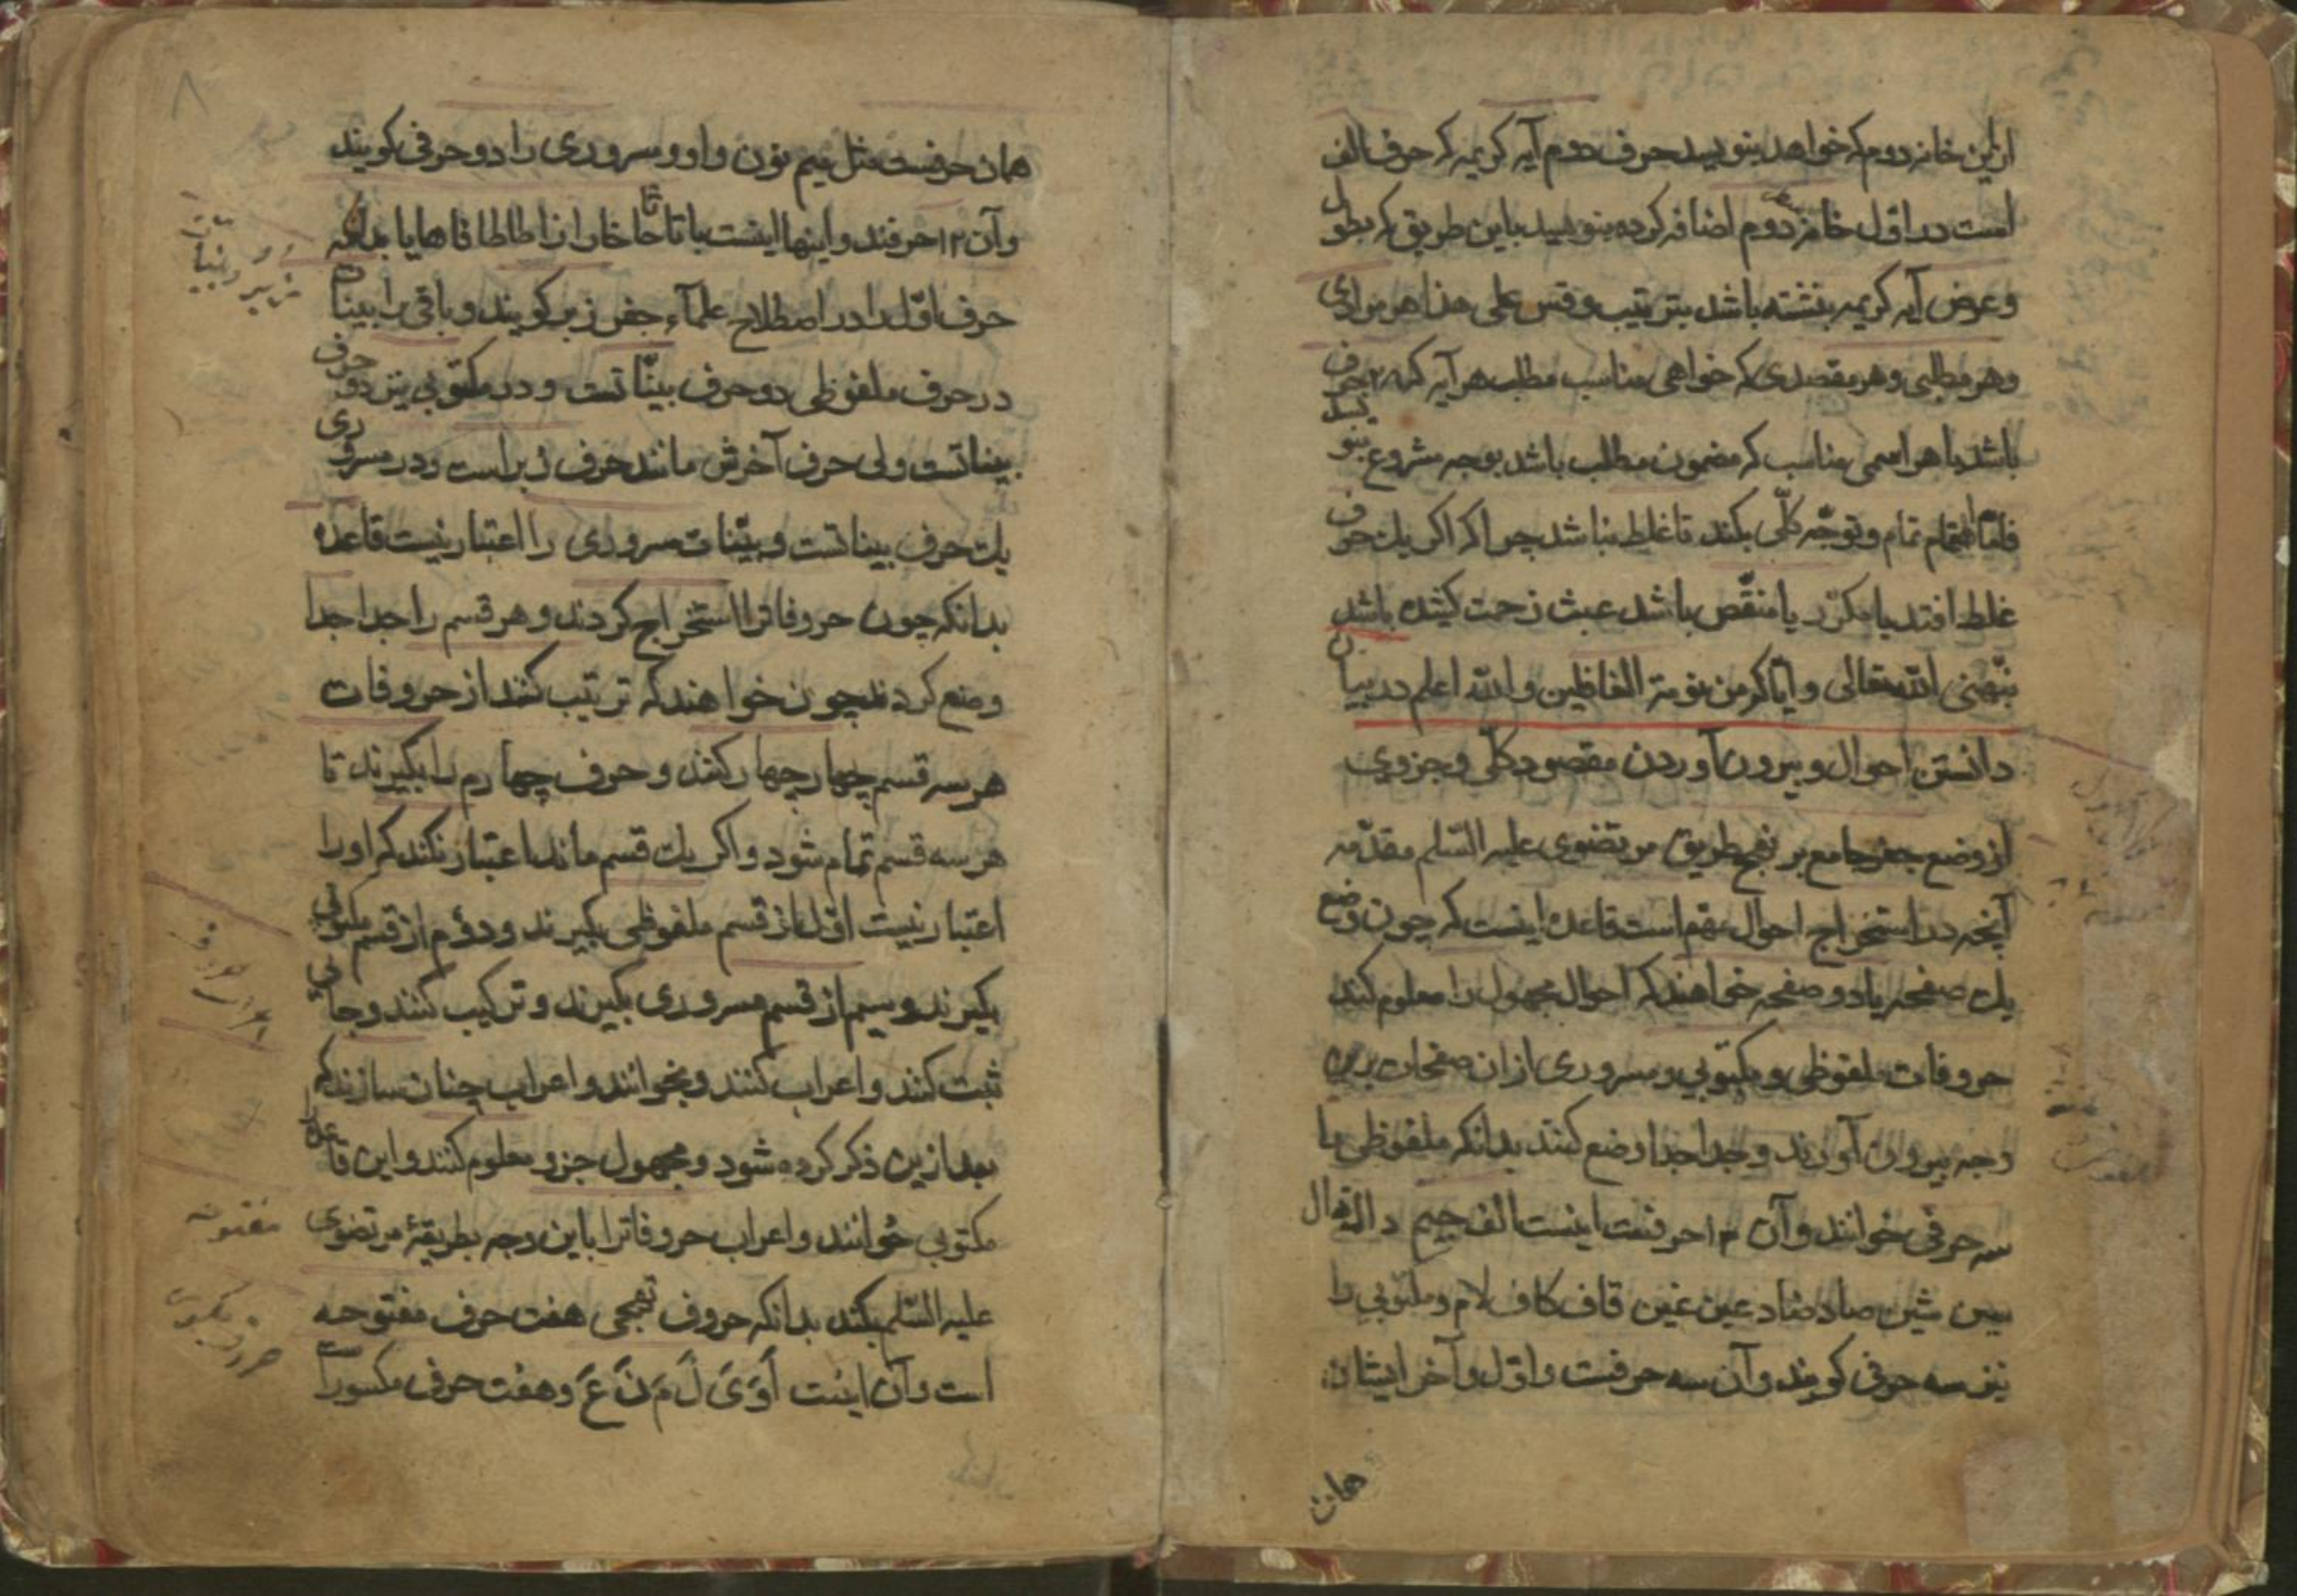 ازین خانه دوم که خواهد بنویسد حرف دوم آیه کریمه که حرف الف
است در اول خانهٔ دوم اضافه کرده بنویسد باین طریق که بطول
و عرض آیه کریمه بنشته باشد بترتیب وقس علی هذا هر مرادی
و هر مطلبی و هر مقصدی که خواهی مناسب مطلب هر آیه که
باشد یا هر اسمی مناسب که مضمون مطلب باشد بوجه مشروع بنویسد
اهتمام تمام و توجّه کلّی بکند تا غلط نباشد چرا که اکر یك حرف
غلط افتد یا مکرّر یا منقّص باشد عبث زحمت کشیده باشد
نبّهنی الله تعالی و ایّاکم من نومة الغافلین والله اعلم در بیان
دانستن احوال و بیرون آوردن مقصود کلّی و جزوی
از وضع جفر جامع بر نهج طریق مرتضوی علیه السّلم مقدّمه
آنچه در استخراج احوال مهم است قاعده اینست که چون وضع
یك صفحه یا دو صفحه خواهند که احوال مجهول را معلوم کنند
حروفات ملفوظی و مکتوبی و مسروری از ان صفحات برین
وجه بیرون آورند و جدا جدا وضع کنند بدانکه ملفوظی یا
سه حرفی خوانند و آن ۱۳ حرفست اینست الف جیم دال ذال
سین شین صاد ضاد عین غین قاف کاف لام و مکتوبی را
نیز سه حرفی کویند و آن سه حرفست و اوّل و آخر ایشان
همان
همان حرفست مثل میم نون واو و مسروری را دو حرفی کویند
و آن ۱۲ حرفند و اینها اینست با تا ثا حا خا را زا طا ظا فا ها یا بدانکه
حرف اوّل را در اصطلاح علمآء جفر زبر کویند و باقی را بینات
در حرف ملفوظی دو حرف بیّنا تست و در مکتوبی نیز دو حرف
بینا تست ولی حرف آخرش مانند حرف زبر است و در مسروری
یك حرف بینا تست و بیّنات مسروری را اعتبار نیست قاعده
بدانکه چون حروفات را استخراج کردند و هر قسم را جدا جدا
وضع کردند چون خواهند که ترتیب کنند از حروفات
هر سه قسم چهار چهار کنند و حرف چهارم را بکیرند تا
هر سه قسم تمام شود و اکر یك قسم ماند اعتبار نکند که او را
اعتبار نیست اوّل از قسم ملفوظی بکیرند و دوّم از قسم مکتوبی
بکیرند و سیم از قسم مسروری بکیرند و ترکیب کنند و جائی
ثبت کنند و اعراب کنند و بخوانند و اعراب چنان سازند که
بعد ازین ذکر کرده شود و مجهول جزو معلوم کنند و این قاعده
مکتوبی خوانند و اعراب حروفات را باین وجه بطریقهٔ مرتضوی
علیه السّلم بکند بدانکه حروف تهجی هفت حرف مفتوحه
است و آن اینست اَ وَ یَ لَ مَ نَ عَ و هفت حرف مکسور است
۸
زبر و بنیات
مفتوحه
حروف مکسور